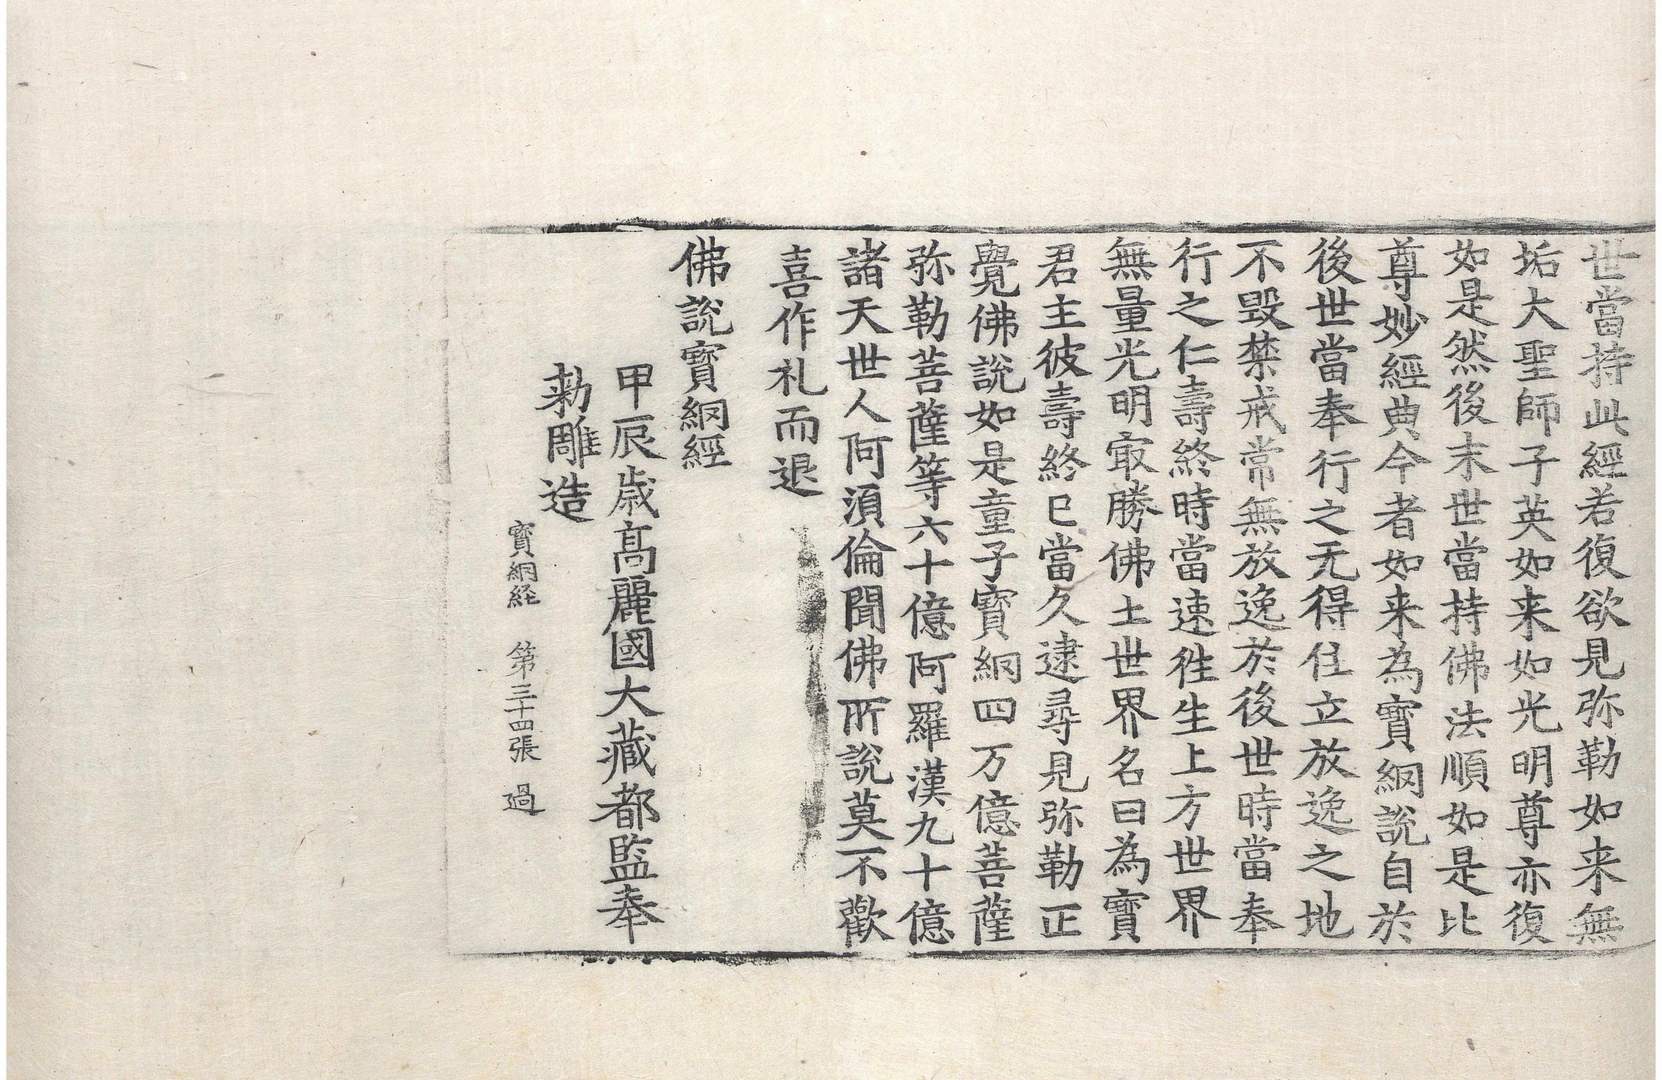 世當持此經若復欲見弥勒如来無
垢大聖師子英如来如光明尊亦復
如是然後末世當持佛法順如是比
尊妙經典今者如来為寳網說自於
後世當奉行之无得住立放逸之地
不毀禁戒常無放逸於後世時當奉
行之仁壽終時當速徃生上方世界
無量光明㝡勝佛土世界名曰為寳
君主彼壽終已當久逮尋見弥勒正
覺佛說如是童子寳網四万億菩薩
弥勒菩薩等六十億阿羅漢九十億
諸天世人阿湏倫聞佛所說莫不歡
喜作礼而退
佛說寳網經
甲辰歲高麗國大藏都監奉
勅雕造
寳網経 第三十四張 過